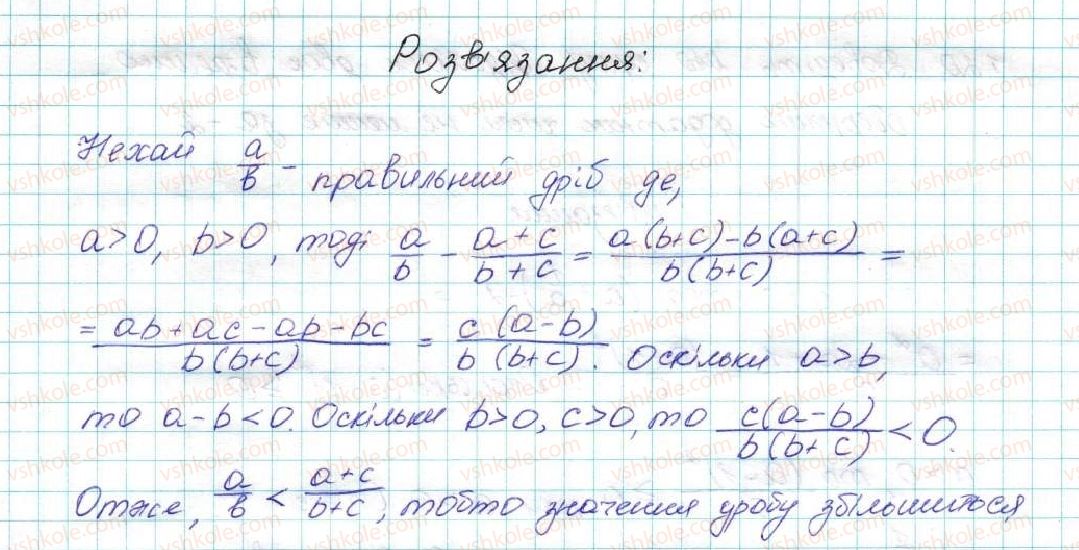 Розв'язання:
Нехай a/b - правильний дріб де,
a>0, b>0, тоді a/b - (a+c)/(b+c) = (a(b+c)-b(a+c))/(b(b+c)) =
= (ab+ac-ab-bc)/(b(b+c)) = (c(a-b))/(b(b+c)). Оскільки a>b,
то a-b<0. Оскільки b>0, c>0, то (c(a-b))/(b(b+c)) <0.
Отже, a/b < (a+c)/(b+c), тобто значення дробу збільшиться